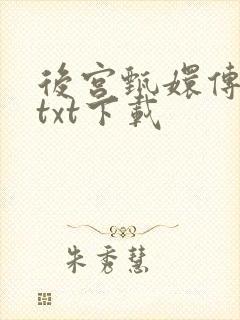 後宮甄嬛傳
txt下載
朱秀慧